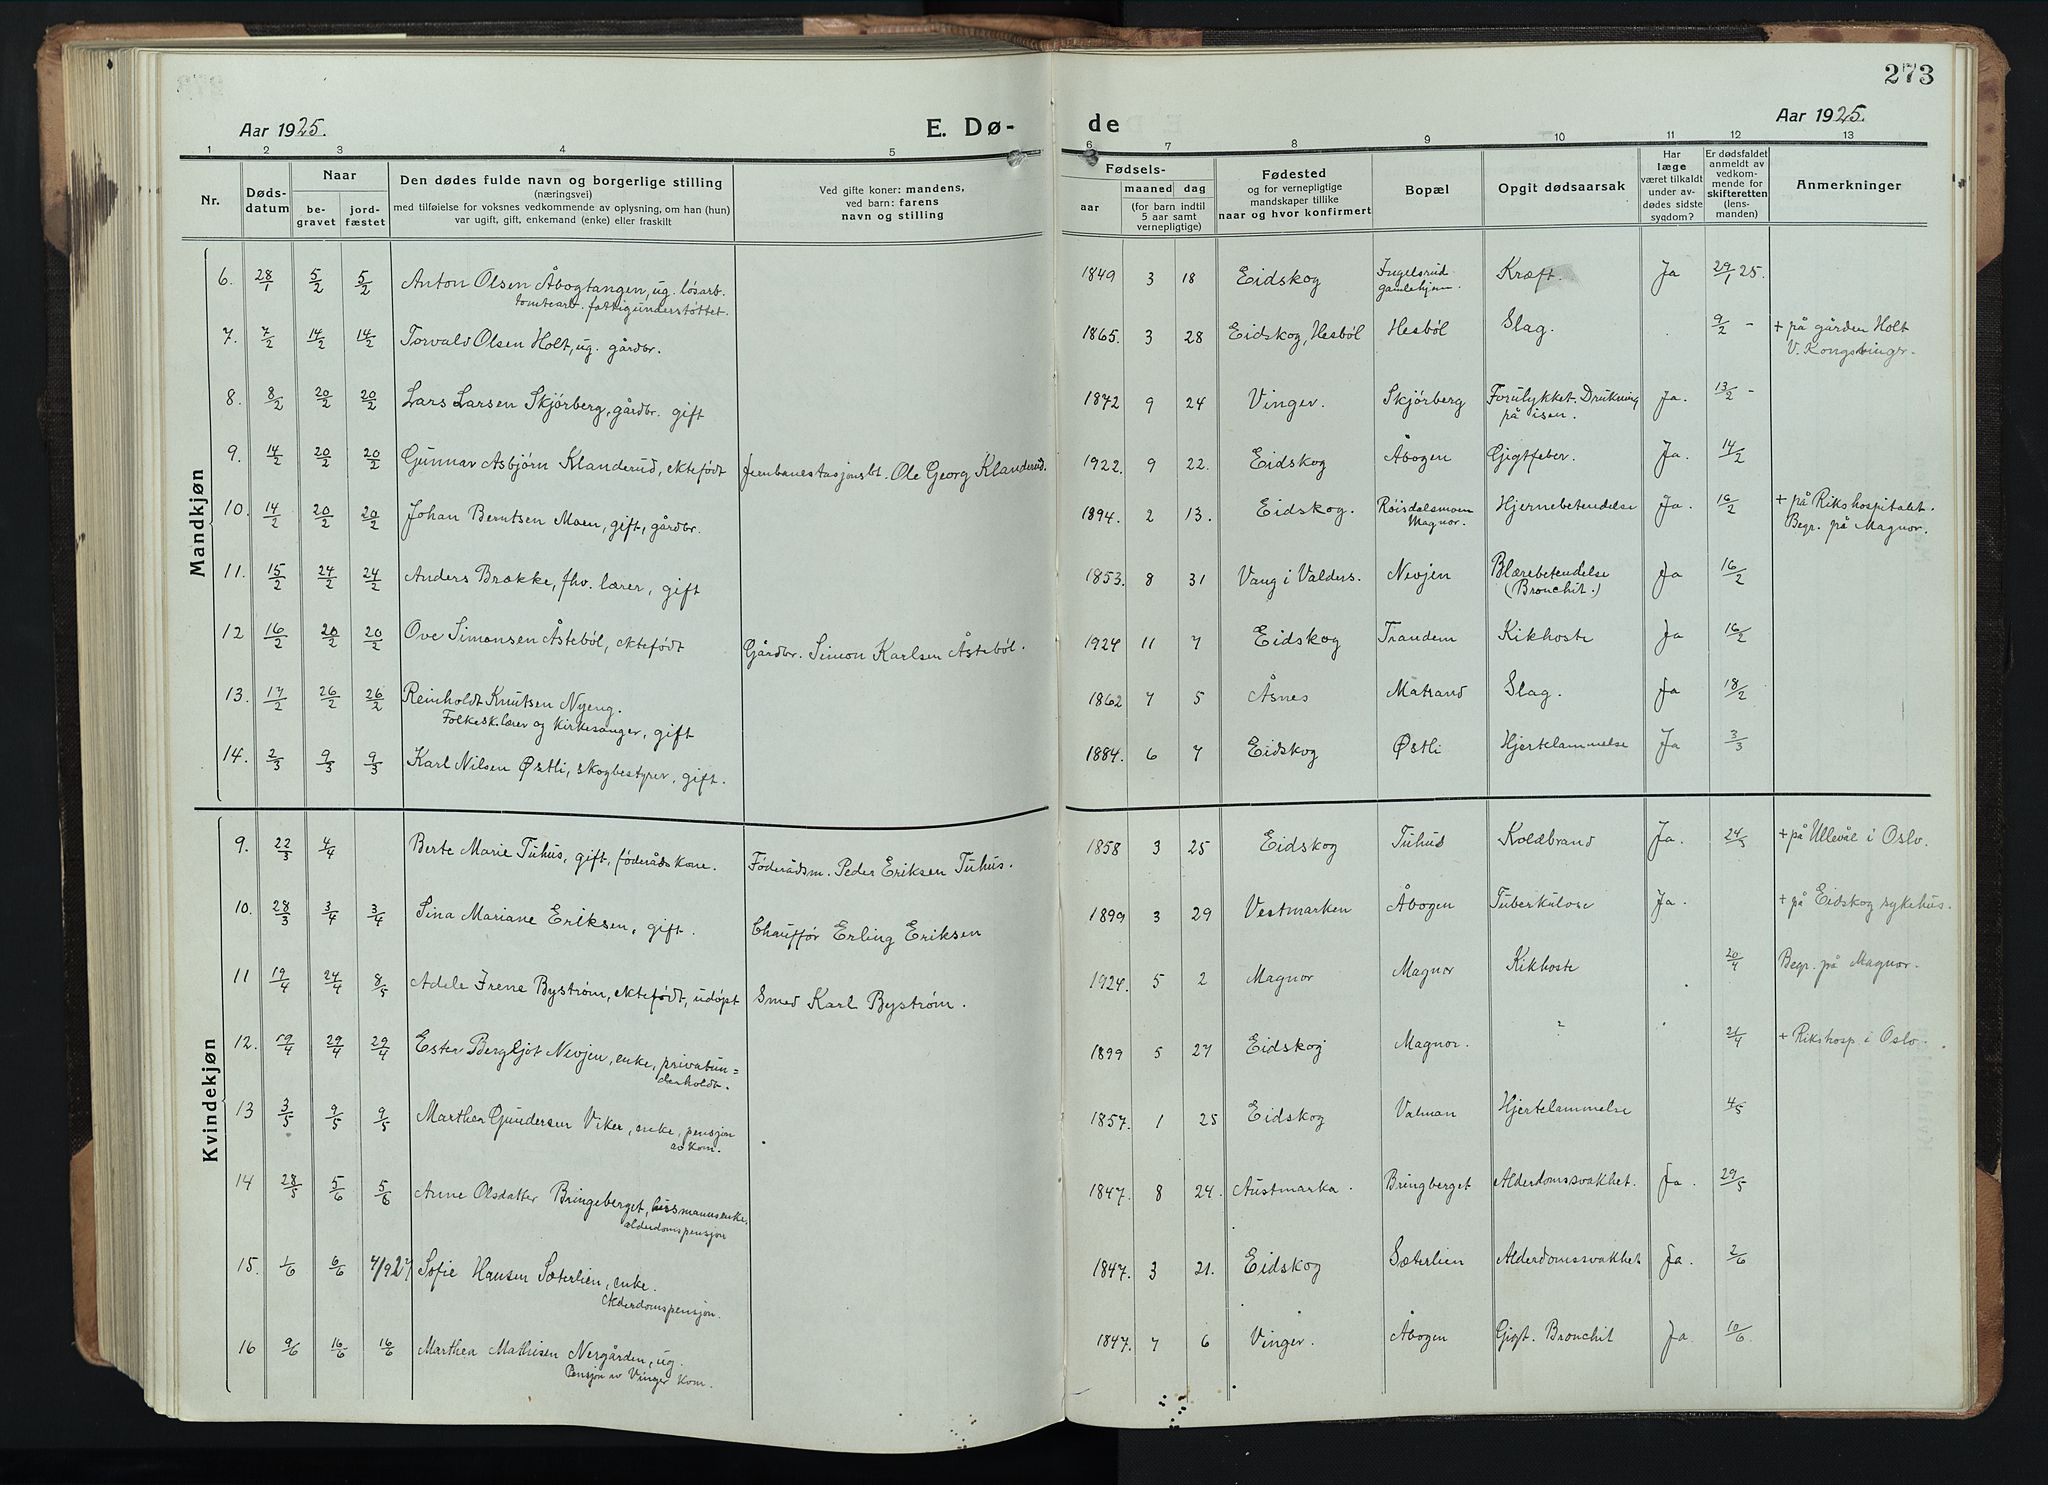 273
Aar 1925.
E. Dø-
de
Aar 1925.
1 2 3 4 5 6 7 8 9 10 11 12 13
Nr.
Døds-
datum
Naar
be-
gravet
jord-
fæstet
Den dødes fulde navn og borgerlige stilling
(næringsvei)
med tilføielse for voksnes vedkommende av oplysning, om han (hun)
var ugift, gift, enkemand (enke) eller fraskilt
Ved gifte koner: mandens,
ved barn: farens
navn og stilling
Fødsels-
aar
maaned
dag
(for barn indtil
5 aar samt
vernepligtige)
Fødested
og for vernepligtige
mandskaper tillike
naar og hvor konfirmert
Bopæl
Opgit dødsaarsak
Har
læge
været tilkaldt
under av-
dødes sidste
sygdom?
Er dødsfaldet
anmeldt av
vedkom-
mende for
skifteretten
(lens-
manden)
Anmerkninger
Mandkjøn
6. 28/1 5/2 5/2 Anton Olsen Åbogtangen, ug. løsarb. 1849 3 18 Eidskog Ingelsrud Kræft. Ja 29/1 25.
tomtearb. fattigunderstøttet. gamlehjem.
7. 7/2 14/2 14/2 Torvald Olsen Holt, ug. gårdbr. 1865. 3 28 Eidskog, Hesbøl Hesbøl Slag. 9/2 - + på gården Holt
V. Kongsvinger.
8. 8/2 20/2 20/2 Lars Larsen Skjørberg, gårdbr. gift 1872 9 24 Vinger. Skjørberg Forulykket. Drukning Ja. 13/2 -
på isen.
9. 14/2 20/2 20/2 Gunnar Asbjørn Klanderud, ektefødt Jernbanestasjonsbt. Ole Georg Klanderud. 1922. 9 22. Eidskog Åbogen Gigtfeber. Ja. 14/2
10. 14/2 20/2 20/2 Johan Berntsen Moen, gift, gårdbr. 1894. 2 13. Eidskog. Røisdalsmoen Hjernebetendelse Ja. 16/2 + på Rikshospitalet.
Magnor. Begr. på Magnor.
11. 15/2 24/2 24/2 Anders Brække, fhv. lærer, gift 1853. 8 31 Vang i Valders. Nevjen Blærebetendelse Ja 16/2
(Bronchit.)
12 16/2 20/2 20/2 Ove Simonsen Åstebøl, ektefødt Gårdbr. Simon Karlsen Åstebøl. 1924 11 7 Eidskog Trandem Kikhoste Ja 16/2
13. 17/2 26/2 26/2 Reinholdt Knutsen Nyeng. 1862 7 5 Åsnes Matrand Slag. Ja 18/2
Folkesk.lærer og kirkesanger, gift
14. 2/3 9/3 9/3 Karl Nilsen Østli, skogbestyrer, gift. 1884. 6 7 Eidskog Østli Hjertelammelse Ja 3/3
Kvindekjøn
9. 22/3 4/4 Berte Marie Tuhus, gift, føderådskone. Føderådsm. Peder Eriksen Tuhus. 1858 3 25 Eidskog Tuhus Koldbrand Ja. 24/5 + på Ullevål i Oslo.
10. 28/3 3/4 3/4 Sina Mariane Eriksen, gift. Chauffør Erling Eriksen 1899 3 29 Vestmarken Åbogen Tuberkulose Ja. + på Eidskog sykehus.
11 19/4 24/4 8/5 Adele Irene Byström, ektefødt, udøpt Smed Karl Byström. 1924. 5 2 Magnor Magnor Kikhoste 20/4 Begr. på Magnor.
12. 19/4 29/4 29/4 Ester Bergljot Nevjen, enke, privatun= 1899 5 27 Eidskog Magnor. 21/4 + Rikshosp. i Oslo.
derholdt.
13 3/5 9/5 9/5 Marthea Gundersen Viker, enke, pensjon 1857. 1 25 Eidskog Valman Hjertelammelse 4/5
av kom.
14 28/5 5/6 5/6 Anne Olsdatter Bringeberget, husmannsenke. 1847. 8 24. Austmarka. Bringberget Alderdomssvakhet. Ja. 29/5
alderdomspensjon
15. 1/6 6/6 4/927 Sofie Hansen Sæterlien, enke. 1847. 3 21. Eidskog Sæterlien Alderdomssvakhet Ja. 2/6
Alderdomspensjon.
16 9/6 16/6 16/6 Marthea Mathisen Nergården, ug. 1847. 7 6 Vinger. Åbogen Gigt. Bronchit Ja. 10/6
Pensjon av Vinger kom.